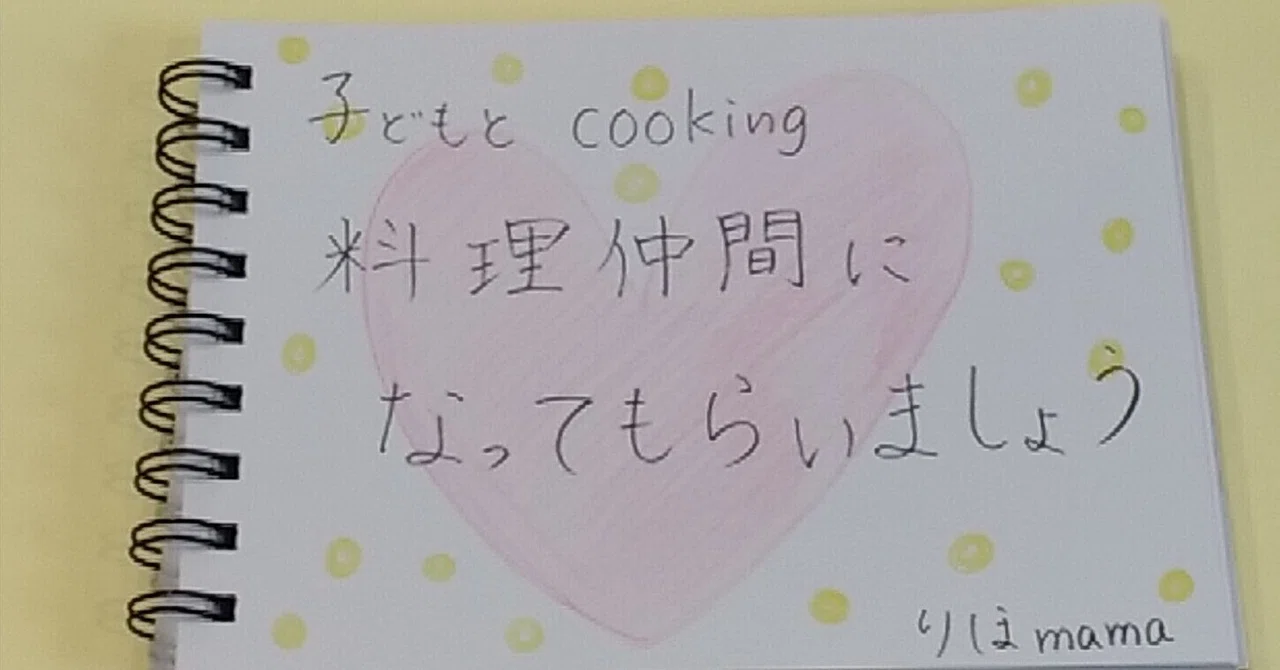 子どもと cooking
料理仲間に
なってもらいましょう
りほmama